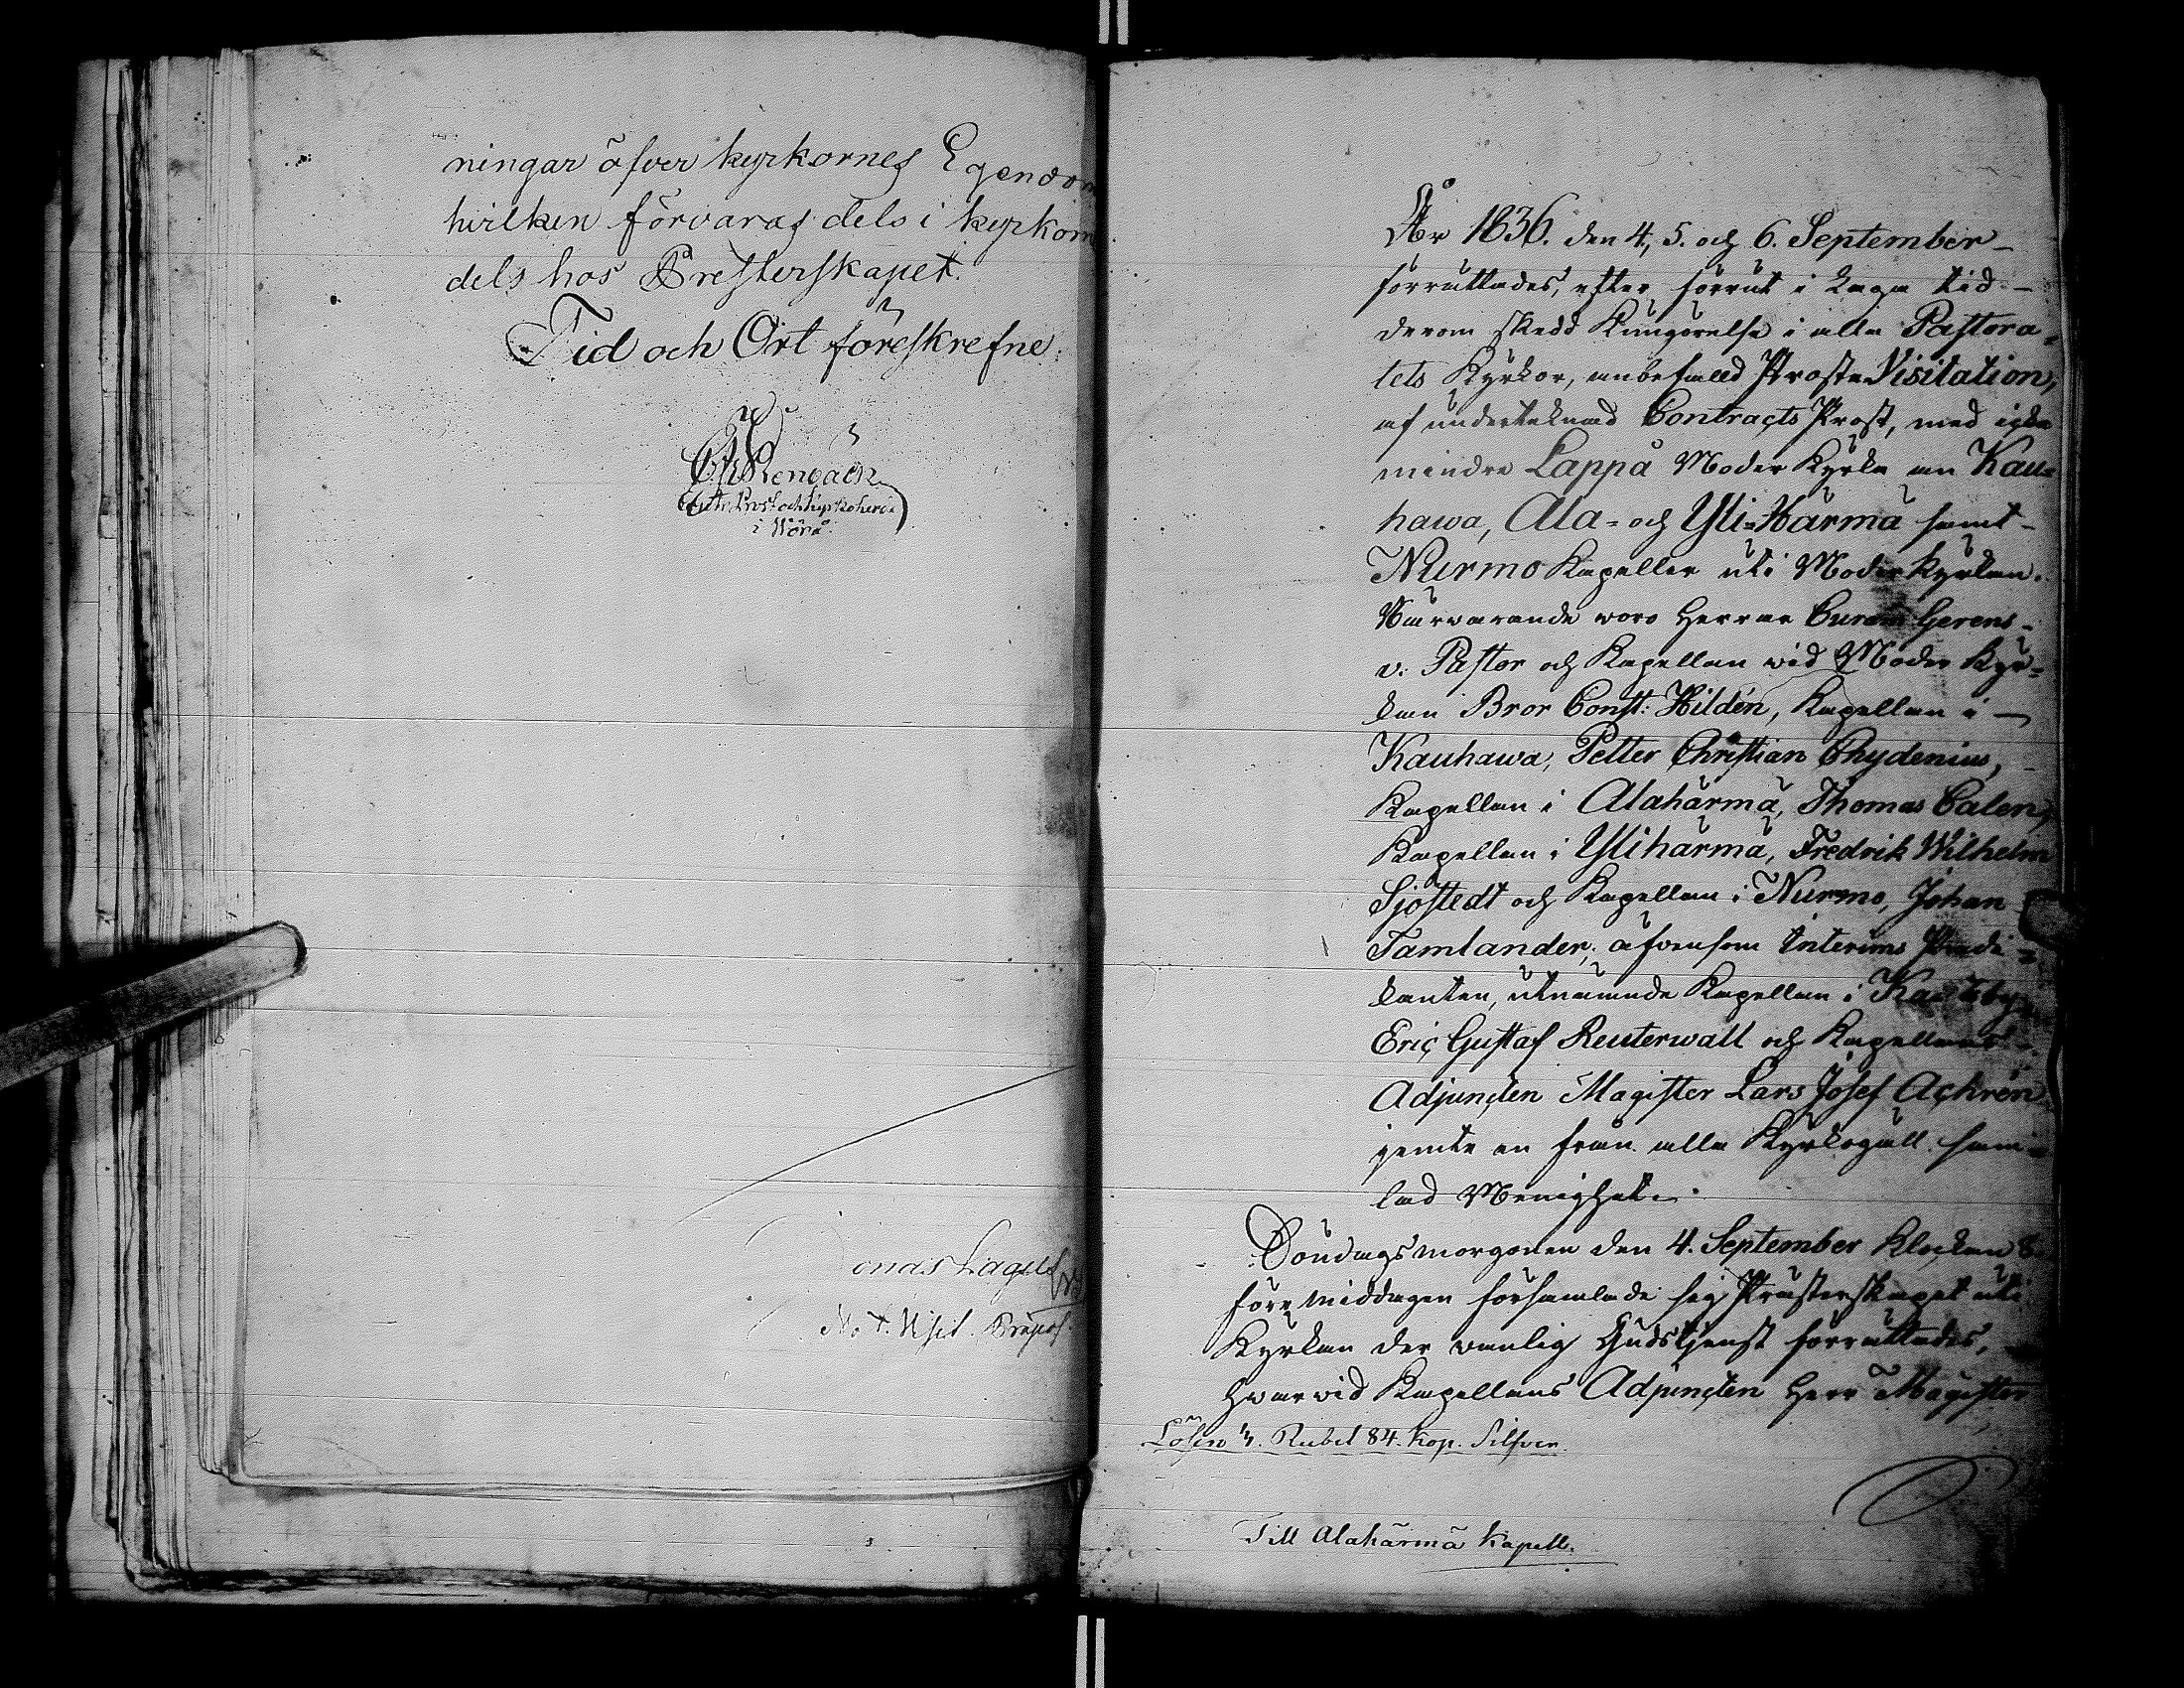 ningar öfver kyrkornes Egendom
hvilken förvaras dels i kyrkorn
dels hos Presterskapet.
Tid och Ort föreskrefne:
Prost och kyrkoherde
i Wörå.
onas Lagus
Visit. Præpos.
År 1836. den 4, 5. och 6. September
förrättades, efter förrut i Laga tid
derom skedd Kungörelse i alla Pastora-
tets Kyrkor, anbefalld Prosta Visitation,
af undertecknad Contracts Prost, med icke
mindre Lappå Moder Kyrka än Kau-
hawa, Ala- och Yli-Härmä samt
Nurmo Kapeller uti Moder Kyrkan.
Närwarande woro Herrar Curam Gerens
v. Pastor och Kapellan wid Moder Kyr-
kan Bror Const: Hildén, Kapellan i
Kauhawa, Petter Christian Chydenius,
Kapellan i Alahärmä, Thomas Calen,
Kapellan i Ylihärmä, Fredrik Wilhelm
Sjöstedt och Kapellan i Nurmo, Johan
Tamlander, äfvensom Interims Predi-
kanten, utnämnde Kapellan i
Eric Gustaf Reuterwall och Kapellans
Adjuncten Magister Lars Josef Achrén
jemte en från alla Kyrkogäll sam-
lad Menighet.
Söndags morgonen den 4. September klockan 8
före middagen församlade sig Presterskapet uti
Kyrkan der vanlig Gudstjenst förrättades,
hwarvid Kapellans Adjuncten Herr Magister
Lösen Rubel 84. kop. Silfver.
Till Alahärmä Kapell.